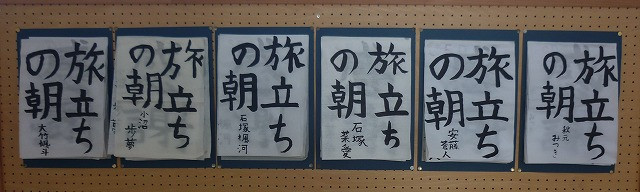 旅立ち
の朝
大竹
旅立ち
の朝
小沼 歩夢
旅立ち
の朝
石塚楓河
旅立ち
の朝
石塚菜愛
旅立ち
の朝
安藤
旅立ち
の朝
秋元みつき